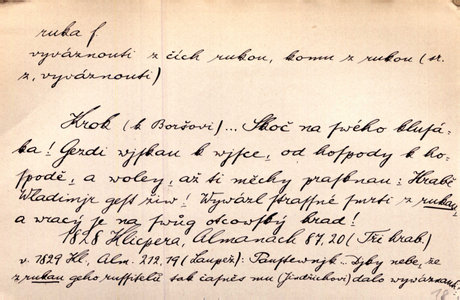 ruka f
vyváznouti z čích rukou, komu z rukou (sr.
z, vyváznouti)
Krok (k Boršovi)... Skoč na swého klusá-
ka! Gezdi wjskau k wjsce, od hospody k ho-
spodě, a woley, až ti měchy prasknau: Hrabě
Wladimjr gest žiw! Wywázl strassné smrti z rukau,
a wracý je na swůg otcowský hrad!
1828 Klicpera, Almanach 87, 20 (Tři hrab.)
v. 1829 Kl, Alm. 212, 19 (Laupež): Pausstewnjk... Dyby nebe, ze
z rukau geho russitelů tak čassně mu (Jindřichovi) dalo wywáznauti